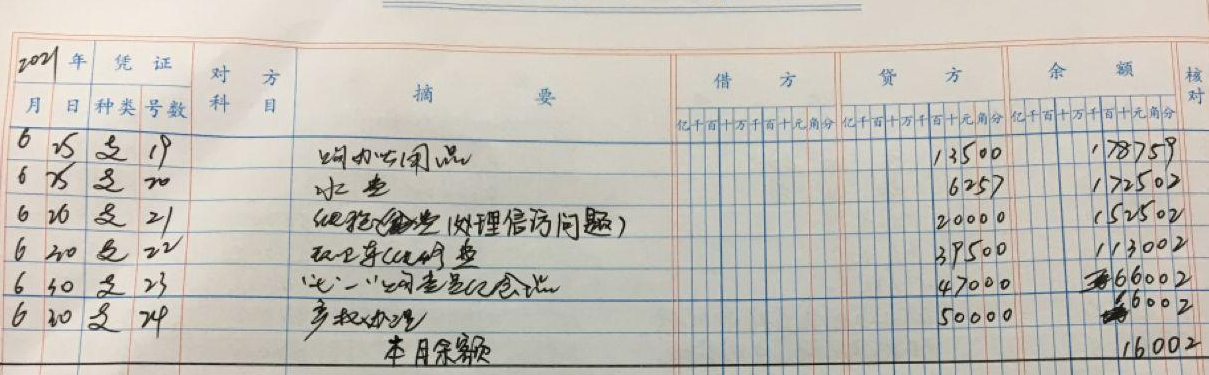 2021 年 凭 证 对 方 摘 要 借 方 贷 方 余 额 核对
月 日 种类 号数 科 目 亿千百十万千百十元角分 亿千百十万千百十元角分 亿千百十万千百十元角分
6 25 支 19 购办公用品 13500 178759
6 25 支 20 水费 6257 172502
6 26 支 21 维稳 费(处理信访问题) 20000 152502
6 30 支 22 环卫车维修费 39500 113002
6 30 支 23 "七一"购党员纪念品 47000 66002
6 30 支 24 产权办理 50000 16002
本月余额 16002